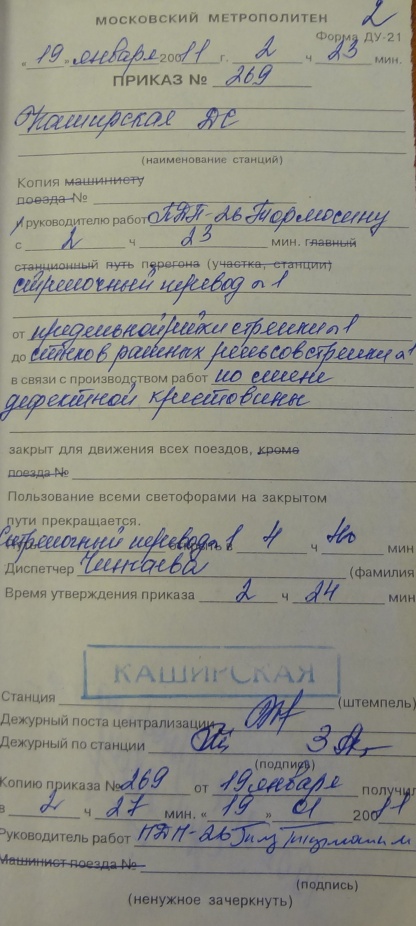 2
МОСКОВСКИЙ МЕТРОПОЛИТЕН
Форма ДУ-21
« 19 » января 20011 г. 2 ч 23 мин.
ПРИКАЗ № 269
Каширская ДС
(наименование станций)
Копия машинисту
поезда №
руководителю работ ПДП-26 Тормосину
с 2 ч 23 мин. главный
станционный путь перегона (участка, станции)
стрелочный перевод №1
от предельной рейки стрелки №1
до стыков рамных рельсов стрелки №1
в связи с производством работ по смене
дефектной крестовины
закрыт для движения всех поездов, кроме
поезда №
Пользование всеми светофорами на закрытом
пути прекращается.
Стрелочный перевод №1 открыть в 4 ч 40 мин
Диспетчер (фамилия
Время утверждения приказа 2 ч 24 мин
КАШИРСКАЯ
Станция (штемпель)
Дежурный поста централизации
Дежурный по станции
(подпись)
Копию приказа № 269 от 19 января получил
в 2 ч 27 мин. « 19 » 01 20011
Руководитель работ ПДП-26
Машинист поезда №
(подпись)
(ненужное зачеркнуть)